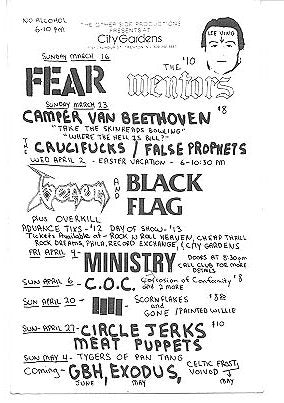 NO ALCOHOL
6-10 PM
THE OTHER SIDE PRODUCTIONS
PRESENTS AT
CityGardens
LEE VING
SUNDAY MARCH 16
FEAR
THE $10
mentors
SUNDAY MARCH 23
CAMPER VAN BEETHOVEN $8
"TAKE THE SKINHEADS BOWLING"
"WHERE THE HELL IS BILL?"
THE CRUCIFUCKS / FALSE PROPHETS
WED APRIL 2 - EASTER VACATION - 6-10:30 PM
Venom
AND BLACK
FLAG
plus OVERKILL
ADVANCE TIXS-$12 DAY OF SHOW-$13
Tickets Available at - ROCK N ROLL HEAVEN, CHEAP THRILL
ROCK DREAMS, PHILA. RECORD EXCHANGE, & CITY GARDENS
FRI APRIL 4-
MINISTRY
DOORS AT 8:30pm
CALL CLUB FOR MORE
DETAILS
SUN APRIL 6 - C.O.C. Corrosion of Conformity $8
and 2 more
SUN APRIL 20 -
SCORNFLAKES
and
GONE / PAINTED WILLIE
SUN- APRIL 27- CIRCLE JERKS $10
MEAT PUPPETS
SUN MAY 4- TYGERS OF PAN TANG
Coming- GBH, EXODUS,
JUNE MAY
CELTIC FROST,
VOIVOD
MAY